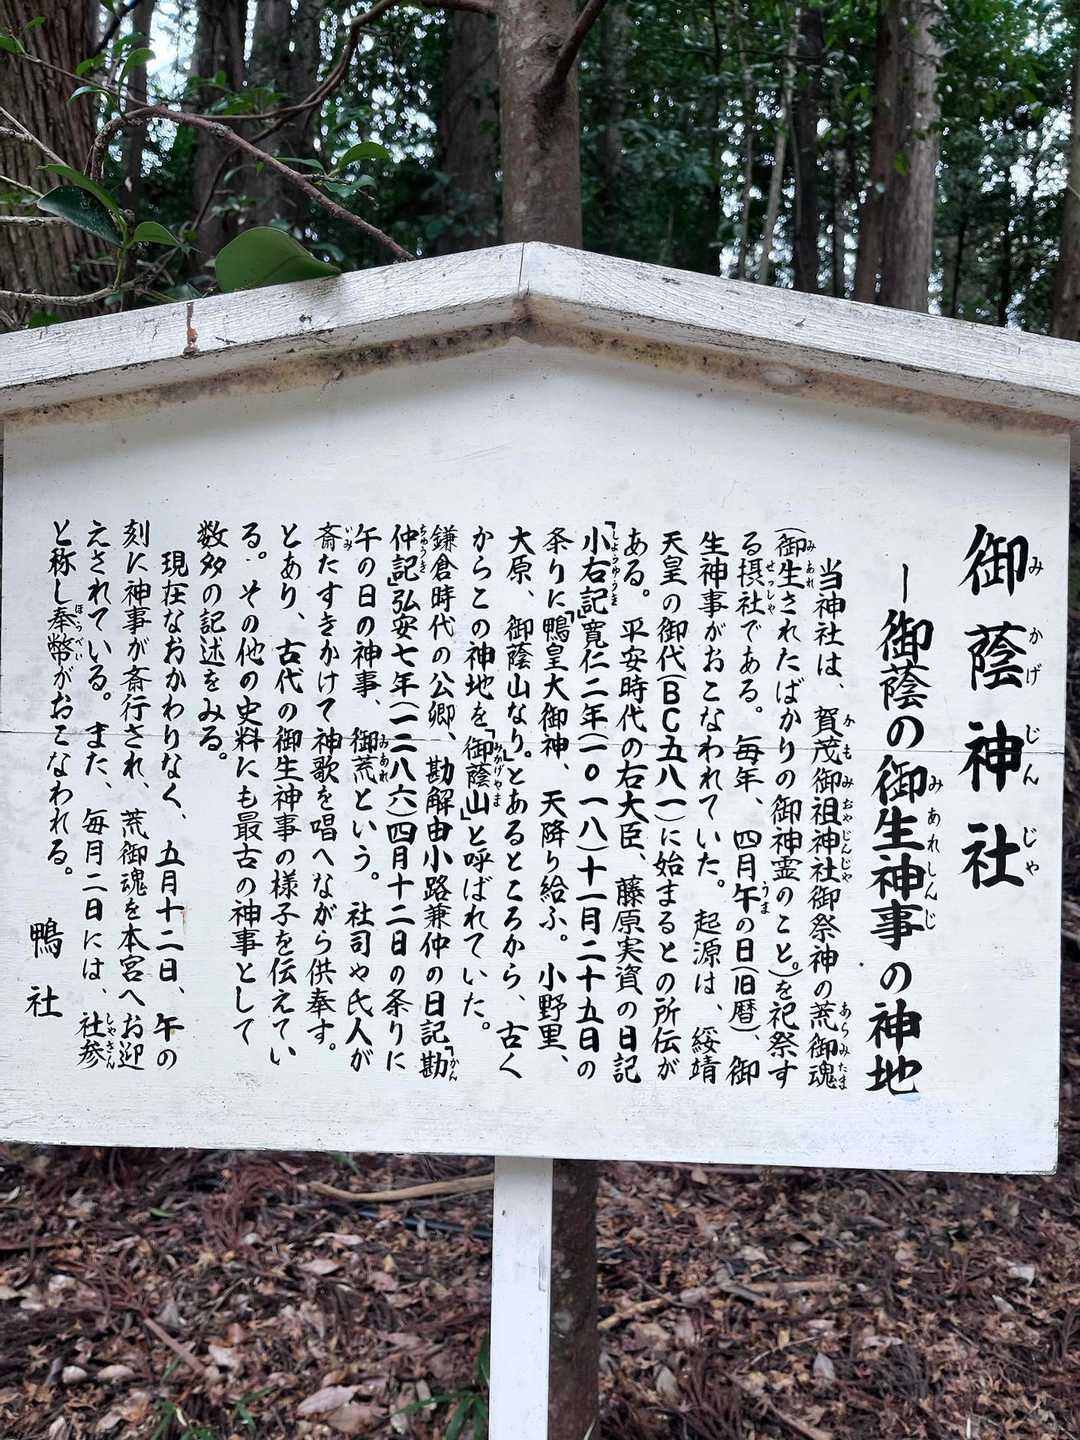 御蔭神社
―御蔭の御生神事の神地
当神社は、賀茂御祖神社御祭神の荒御魂
(御生されたばかりの御神霊のこと。)を祀祭す
る摂社である。毎年、四月午の日(旧暦)、御
生神事がおこなわれていた。起源は、綏靖
天皇の御代(BC五八一)に始まるとの所伝が
ある。平安時代の右大臣、藤原実資の日記
「小右記」寛仁二年(一〇一八)十一月二十五日の
条りに「鴨皇大御神、天降り給ふ。小野里、
大原、御蔭山なり。」とあるところから、古く
からこの神地を「御蔭山」と呼ばれていた。
鎌倉時代の公卿、勘解由小路兼仲の日記「勘
仲記」弘安七年(一二八六)四月十二日の条りに
午の日の神事、御荒という。社司や氏人が
斎たすきかけて神歌を唱へながら供奉す。
とあり、古代の御生神事の様子を伝えてい
る。その他の史料にも最古の神事として
数多の記述をみる。
現在なおかわりなく、五月十二日、午の
刻に神事が斎行され、荒御魂を本宮へお迎
えされている。また、毎月二日には、社参
と称し奉幣がおこなわれる。
鴨社